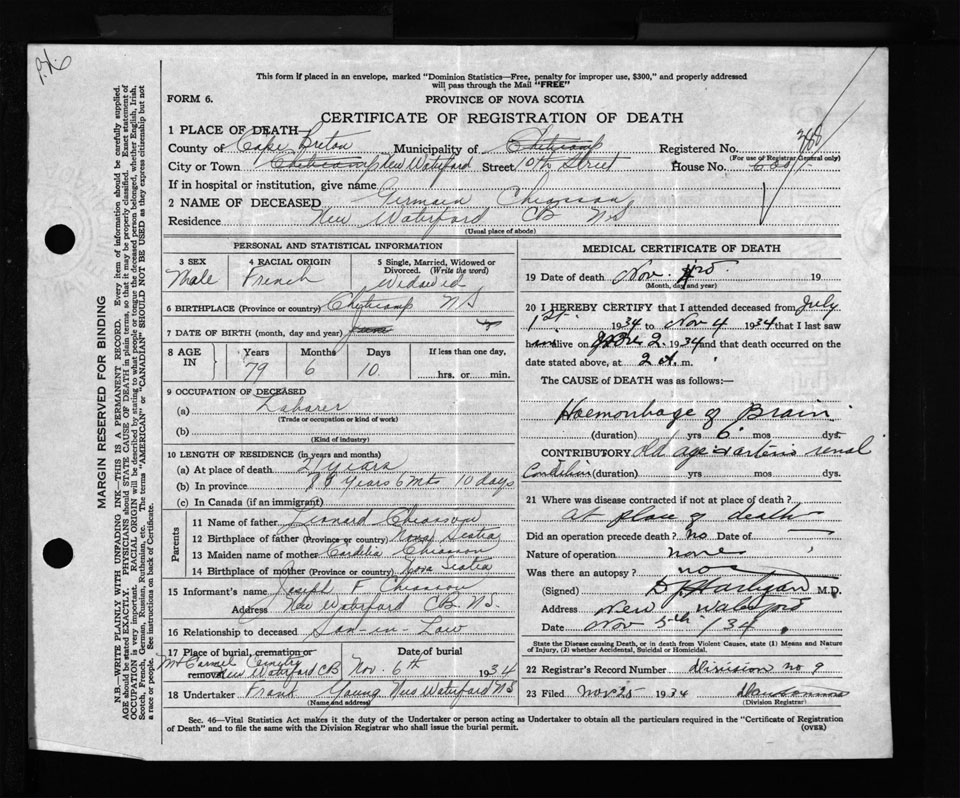 P.L.
This form if placed in an envelope, marked "Dominion Statistics—Free, penalty for improper use, $300," and properly addressed
will pass through the Mail "FREE"
FORM 6.
PROVINCE OF NOVA SCOTIA
CERTIFICATE OF REGISTRATION OF DEATH
1 PLACE OF DEATH
County of Cape Breton Municipality of Cheticamp Registered No.
(For use of Registrar General only)
City or Town Cheticamp New Waterford Street 10th Street House No.
If in hospital or institution, give name
2 NAME OF DECEASED Germain Chiasson
Residence New Waterford CB NS
(Usual place of abode)
PERSONAL AND STATISTICAL INFORMATION
3 SEX Male
4 RACIAL ORIGIN French
5 Single, Married, Widowed or Divorced. (Write the word) Widowed
6 BIRTHPLACE (Province or country) Cheticamp NS
7 DATE OF BIRTH (month, day and year)
8 AGE IN Years Months Days If less than one day,
79 6 10 hrs. or min.
9 OCCUPATION OF DECEASED
(a) Laborer
(Trade or occupation or kind of work)
(b)
(Kind of industry)
10 LENGTH OF RESIDENCE (in years and months)
(a) At place of death years
(b) In province years 6 mts 10 days
(c) In Canada (if an immigrant)
Parents
11 Name of father Leonard Chiasson
12 Birthplace of father (Province or country) Nova Scotia
13 Maiden name of mother Cordelia Chiasson
14 Birthplace of mother (Province or country) Nova Scotia
15 Informant's name Joseph F Chiasson
Address New Waterford CB NS.
16 Relationship to deceased Son-in-Law
17 Place of burial, cremation or removal Date of burial
Mt Carmel Cemetery New Waterford CB Nov. 6th 1934
18 Undertaker Frank Young New Waterford NS
(Name and address)
MEDICAL CERTIFICATE OF DEATH
19 Date of death Nov. 3rd. 19
(Month, day and year)
20 I HEREBY CERTIFY that I attended deceased from July
1st 1934 to Nov 4 1934 that I last saw
h alive on 2 1934 and that death occurred on the
date stated above, at 2 a. m.
The CAUSE of DEATH was as follows:
Haemorrhage of Brain
(duration) yrs 6 mos dys.
CONTRIBUTORY Old age & arterio renal
Condition (duration) yrs mos dys.
21 Where was disease contracted if not at place of death?
at place of death
Did an operation precede death? no Date of
Nature of operation none
Was there an autopsy? no
(Signed) D. Hartigan M.D.
Address New Waterford
Date Nov 5th /34
State the Disease causing Death, or in Death from Violent Causes, state (1) Means and Nature of Injury, (2) whether Accidental, Suicidal or Homicidal.
22 Registrar's Record Number Division no 9
23 Filed Nov 25 1934
(Division Registrar)
Sec. 46—Vital Statistics Act makes it the duty of the Undertaker or person acting as Undertaker to obtain all the particulars required in the "Certificate of Registration
of Death" and to file the same with the Division Registrar who shall issue the burial permit.
(OVER)
MARGIN RESERVED FOR BINDING
N.B.—WRITE PLAINLY WITH UNFADING INK—THIS IS A PERMANENT RECORD. Every item of information should be carefully supplied.
AGE should be stated EXACTLY. PHYSICIANS should STATE CAUSE OF DEATH in plain terms, so that it may be properly classified. Exact statement of
OCCUPATION is very important. RACIAL ORIGIN will be described by stating to what people or tongue the deceased person belonged, whether English, Irish,
Scotch, French, German, Russian, Ruthenian, etc. The terms "AMERICAN" or "CANADIAN" SHOULD NOT BE USED as they express citizenship but not
a race or people. See instructions on back of Certificate.